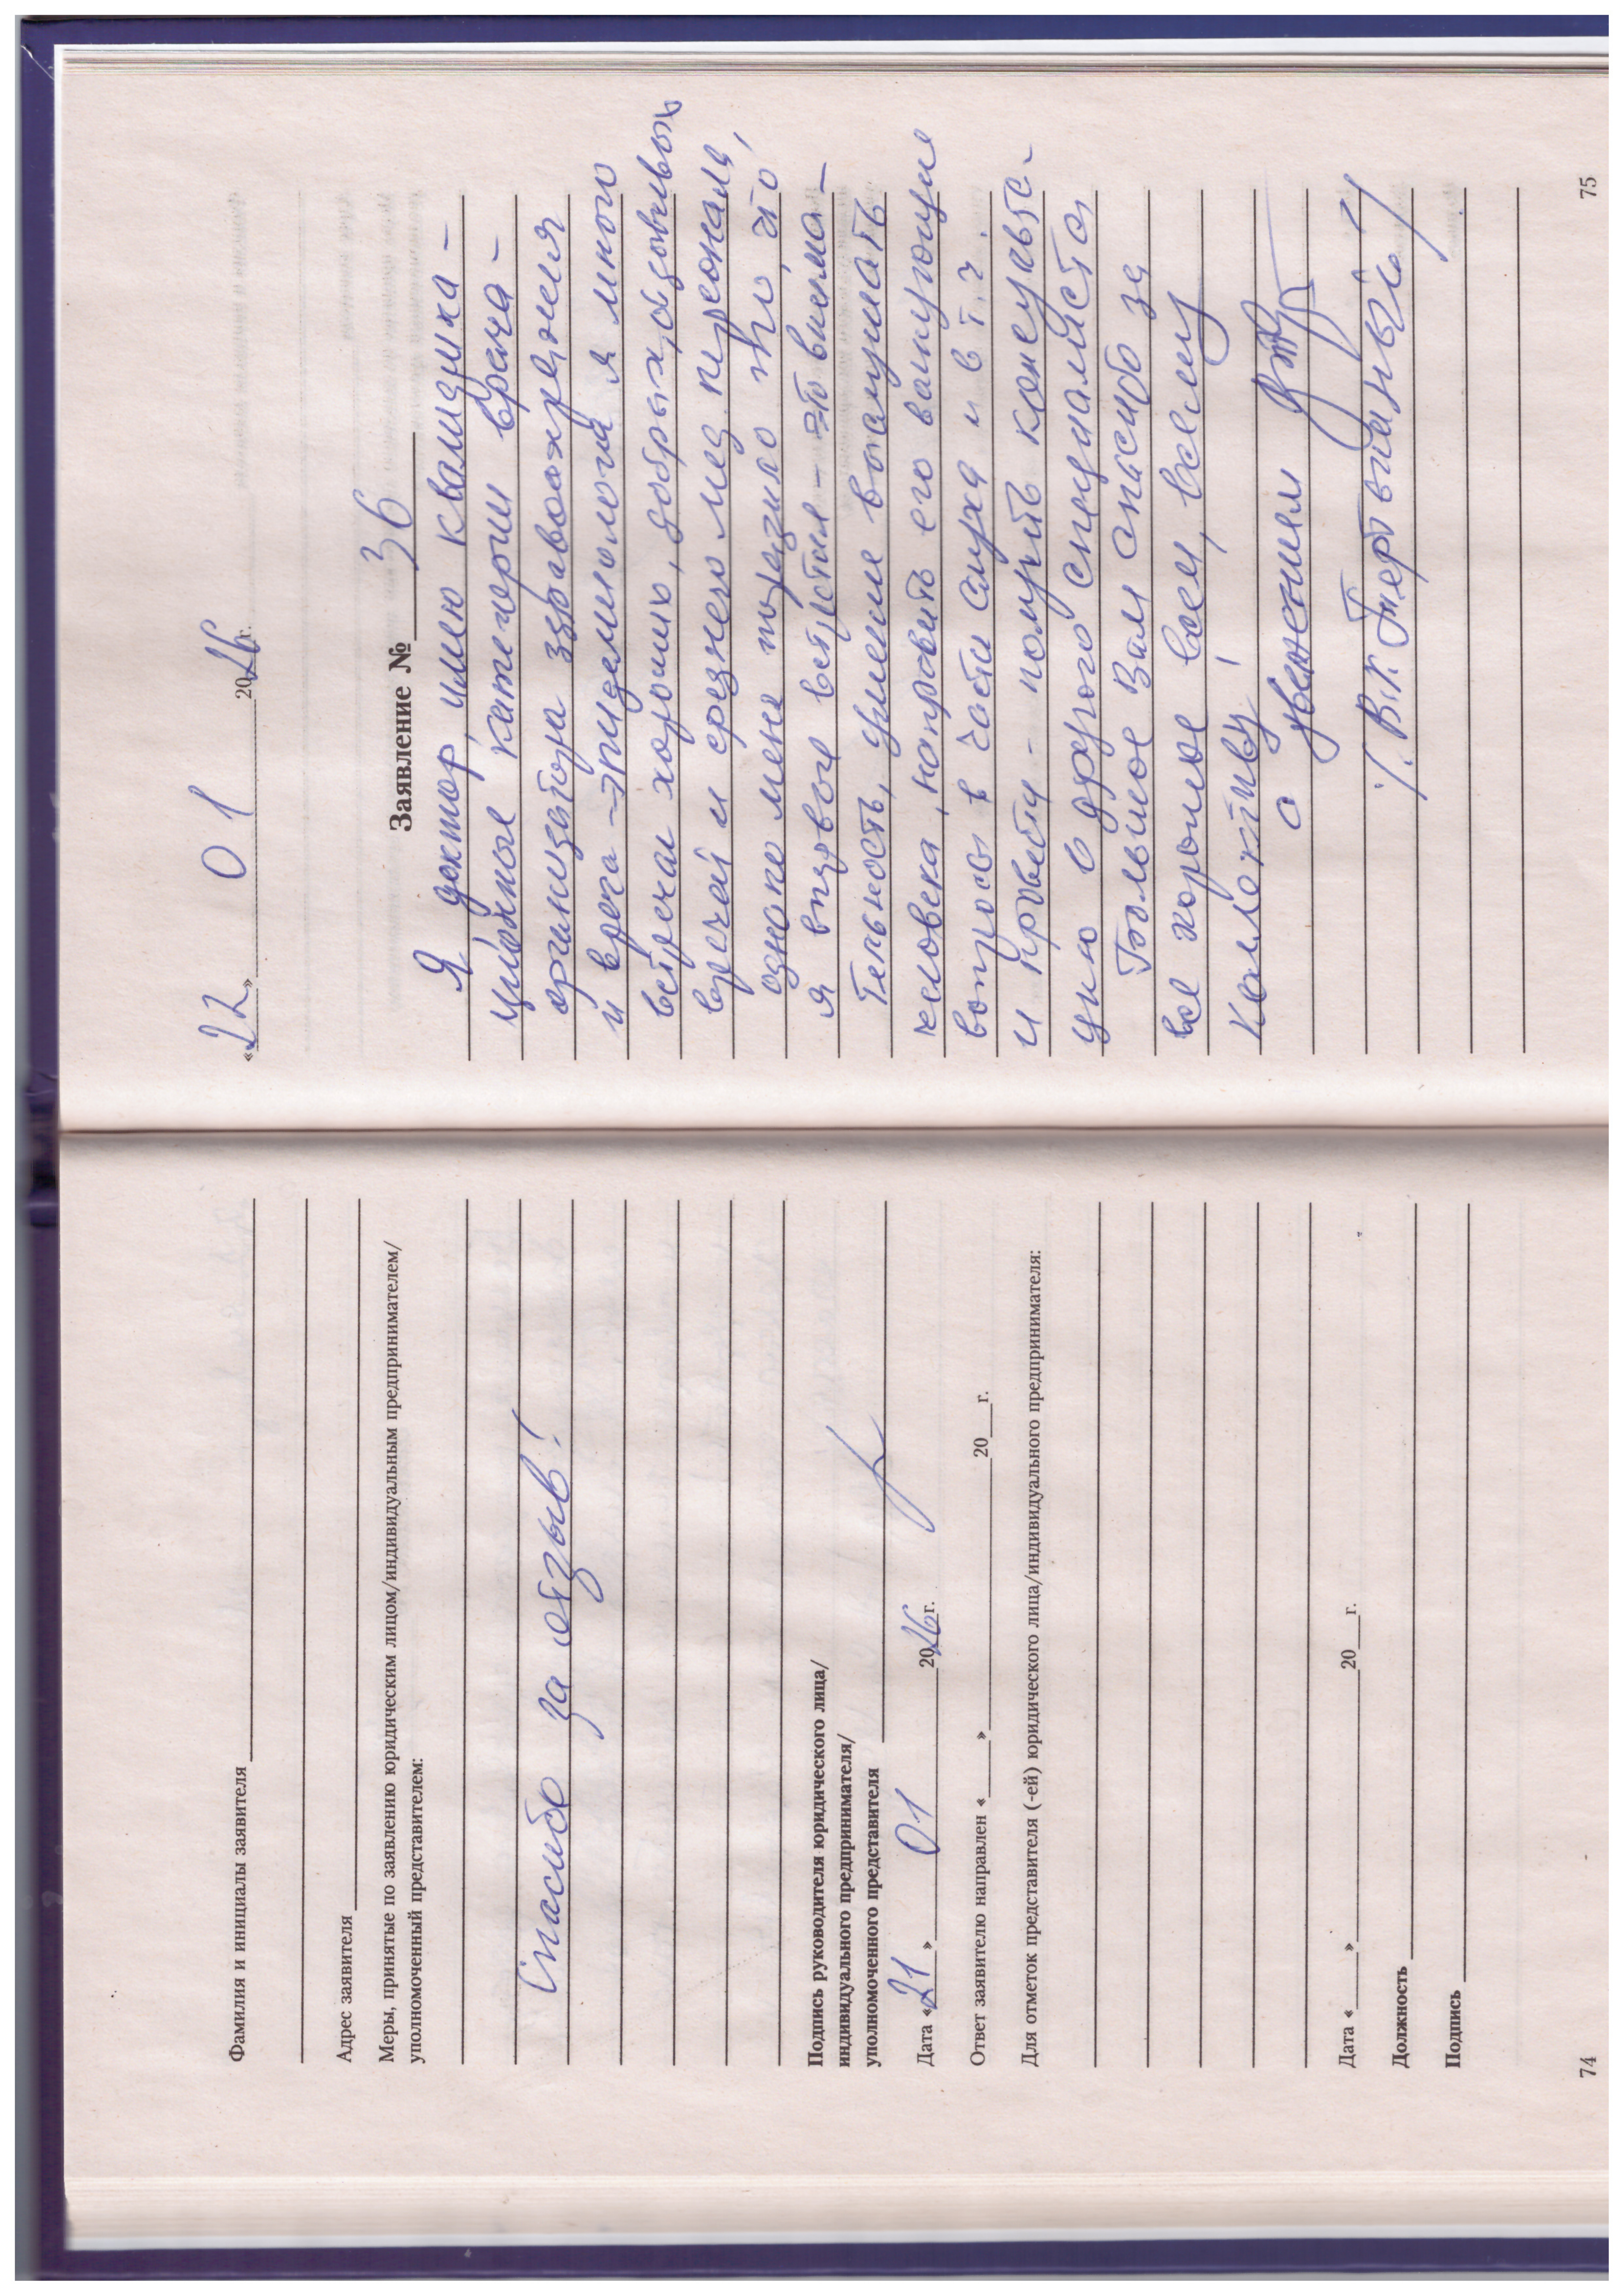 Фамилия и инициалы заявителя
Адрес заявителя
Меры, принятые по заявлению юридическим лицом/индивидуальным предпринимателем/
уполномоченный представителем:
Спасибо за отзыв!
Подпись руководителя юридического лица/
индивидуального предпринимателя/
уполномоченного представителя
Дата «21» 01 2026г.
Ответ заявителю направлен «___» 20__г.
Для отметок представителя (-ей) юридического лица/индивидуального предпринимателя:
Дата «___» 20__г.
Должность
Подпись
74
«22» 01 2026г.
Заявление № 36
Я доктор, имею квалифика-
ционные категории врача-
организатора здравоохранения
и врача-эпидемиолога и много
встречал хороших, добрых, отзывчивых
врачей и среднего мед персонала,
однако меня поразило то, что
я впервые встретил - это внима-
тельность, умение выслушать
человека, направить его волнующие
вопросы в части слуха и в т.ч.
и провести - получить консульта-
цию у другого специалиста
Большое Вам спасибо за
все хорошее всем, всему
коллективу!
с уважением
/В.К.
75